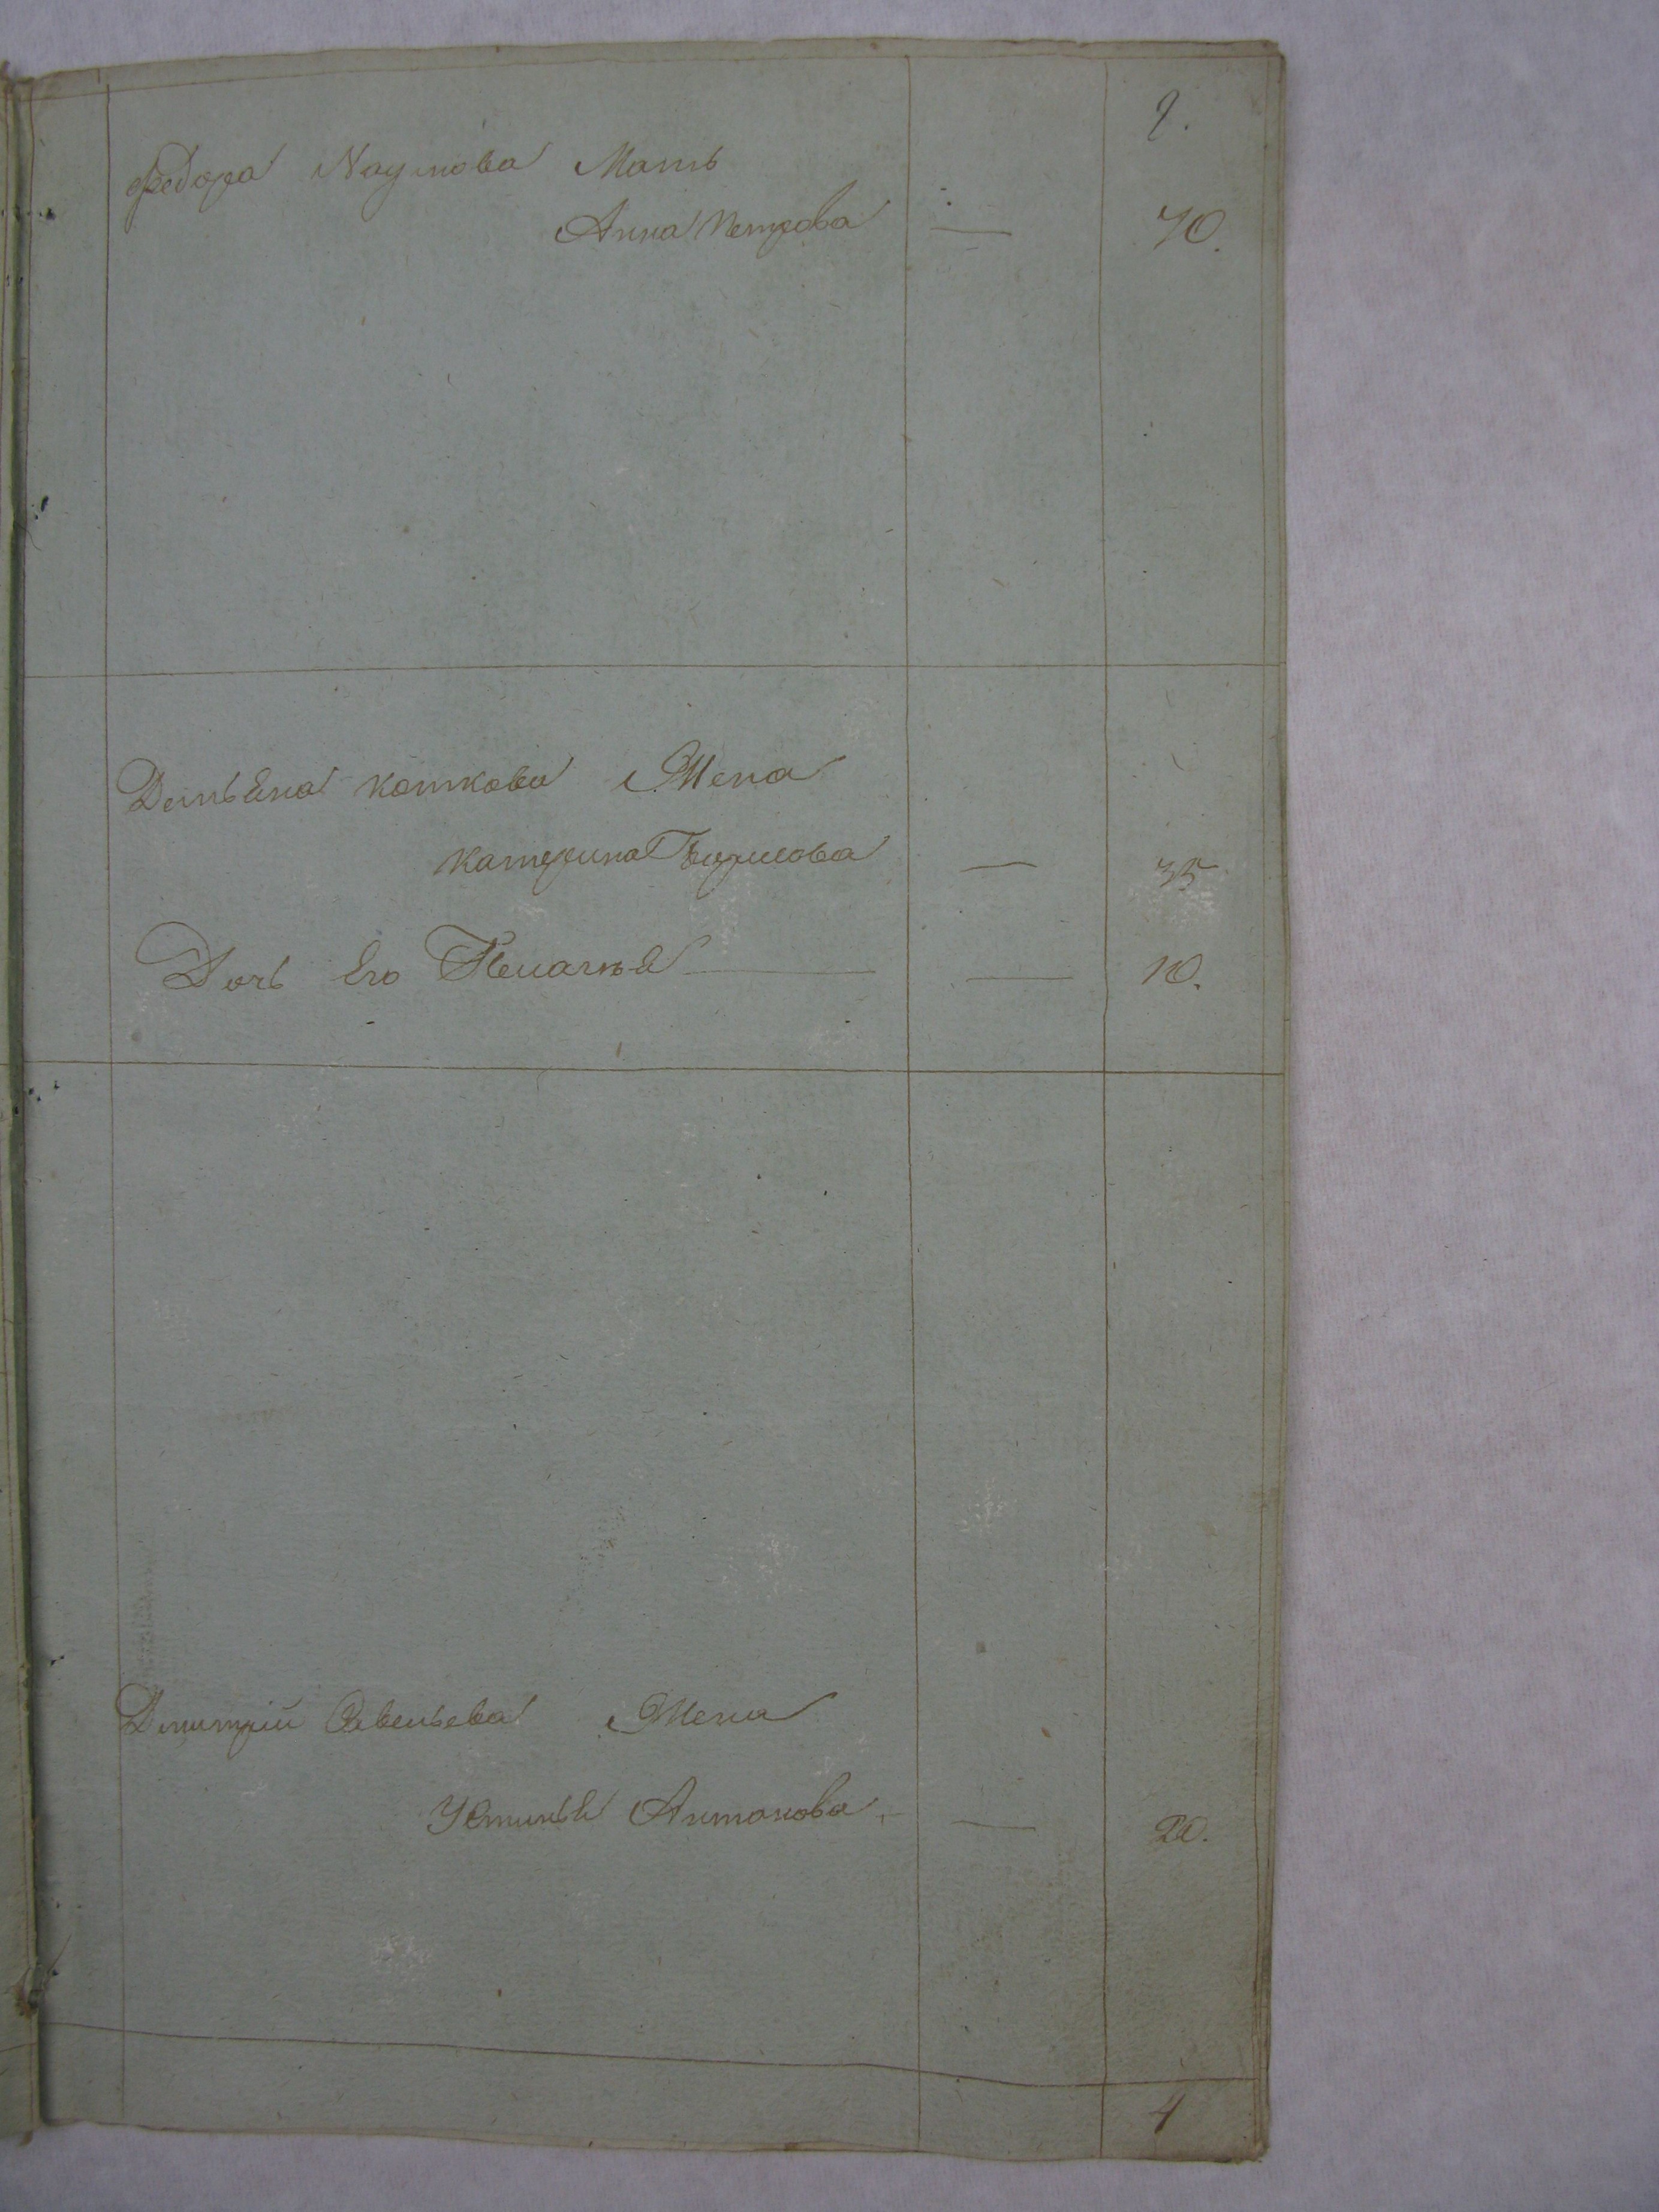 9.
Федора Наумова Мать
Анна Петрова — 70.
Демьяна коткова Жена
катерина — 35
Дочь Его Пелагѣя — — 10.
Дмитрiй Савельева Жена
Устинья Антонова — 20.
4